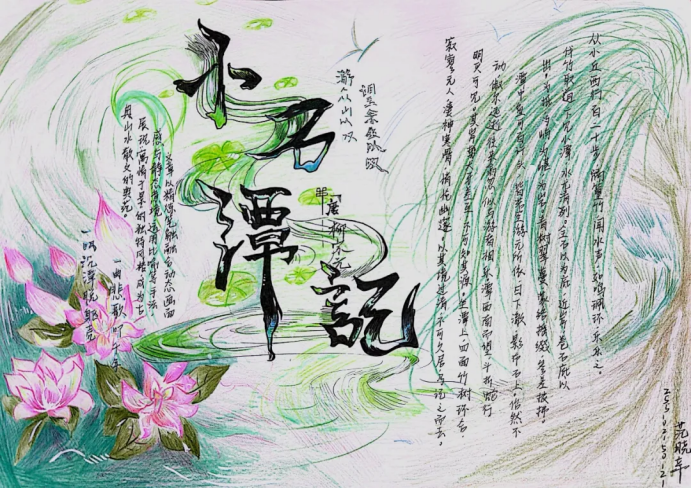 小石潭記
「唐」柳宗元
从小丘西行百二十步,隔篁竹,闻水声,如鸣珮环,心乐之。
伐竹取道,下见小潭,水尤清冽。全石以为底,近岸,卷石底以
出,为坻为屿为嵁为岩。青树翠蔓,蒙络摇缀,参差披拂。
潭中鱼可百许头,皆若空游无所依,日下澈,影布石上。佁然不
动,俶尔远逝,往来翕忽,似与游者相乐。潭西南而望,斗折蛇行,
明灭可见。其岸势犬牙差互,不可知其源。坐潭上,四面竹树环合,
寂寥无人,凄神寒骨,悄怆幽邃。以其境过清,不可久居,乃记之而去。
文章以精悍 动态画面
感与静态意境,运用比喻等手法,
展现“寓情于景”的独特风格,成为古
典山水散文的典范。
一曲悲歌
一眼沉潭映
范晓